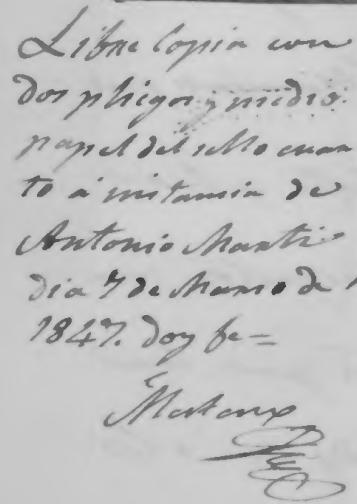 Libre copia con
dos pliegos y medio
papel del sello cuar
to á instancia de
Antonio Marti
dia 7 de Marzo de
1847. doy fe=